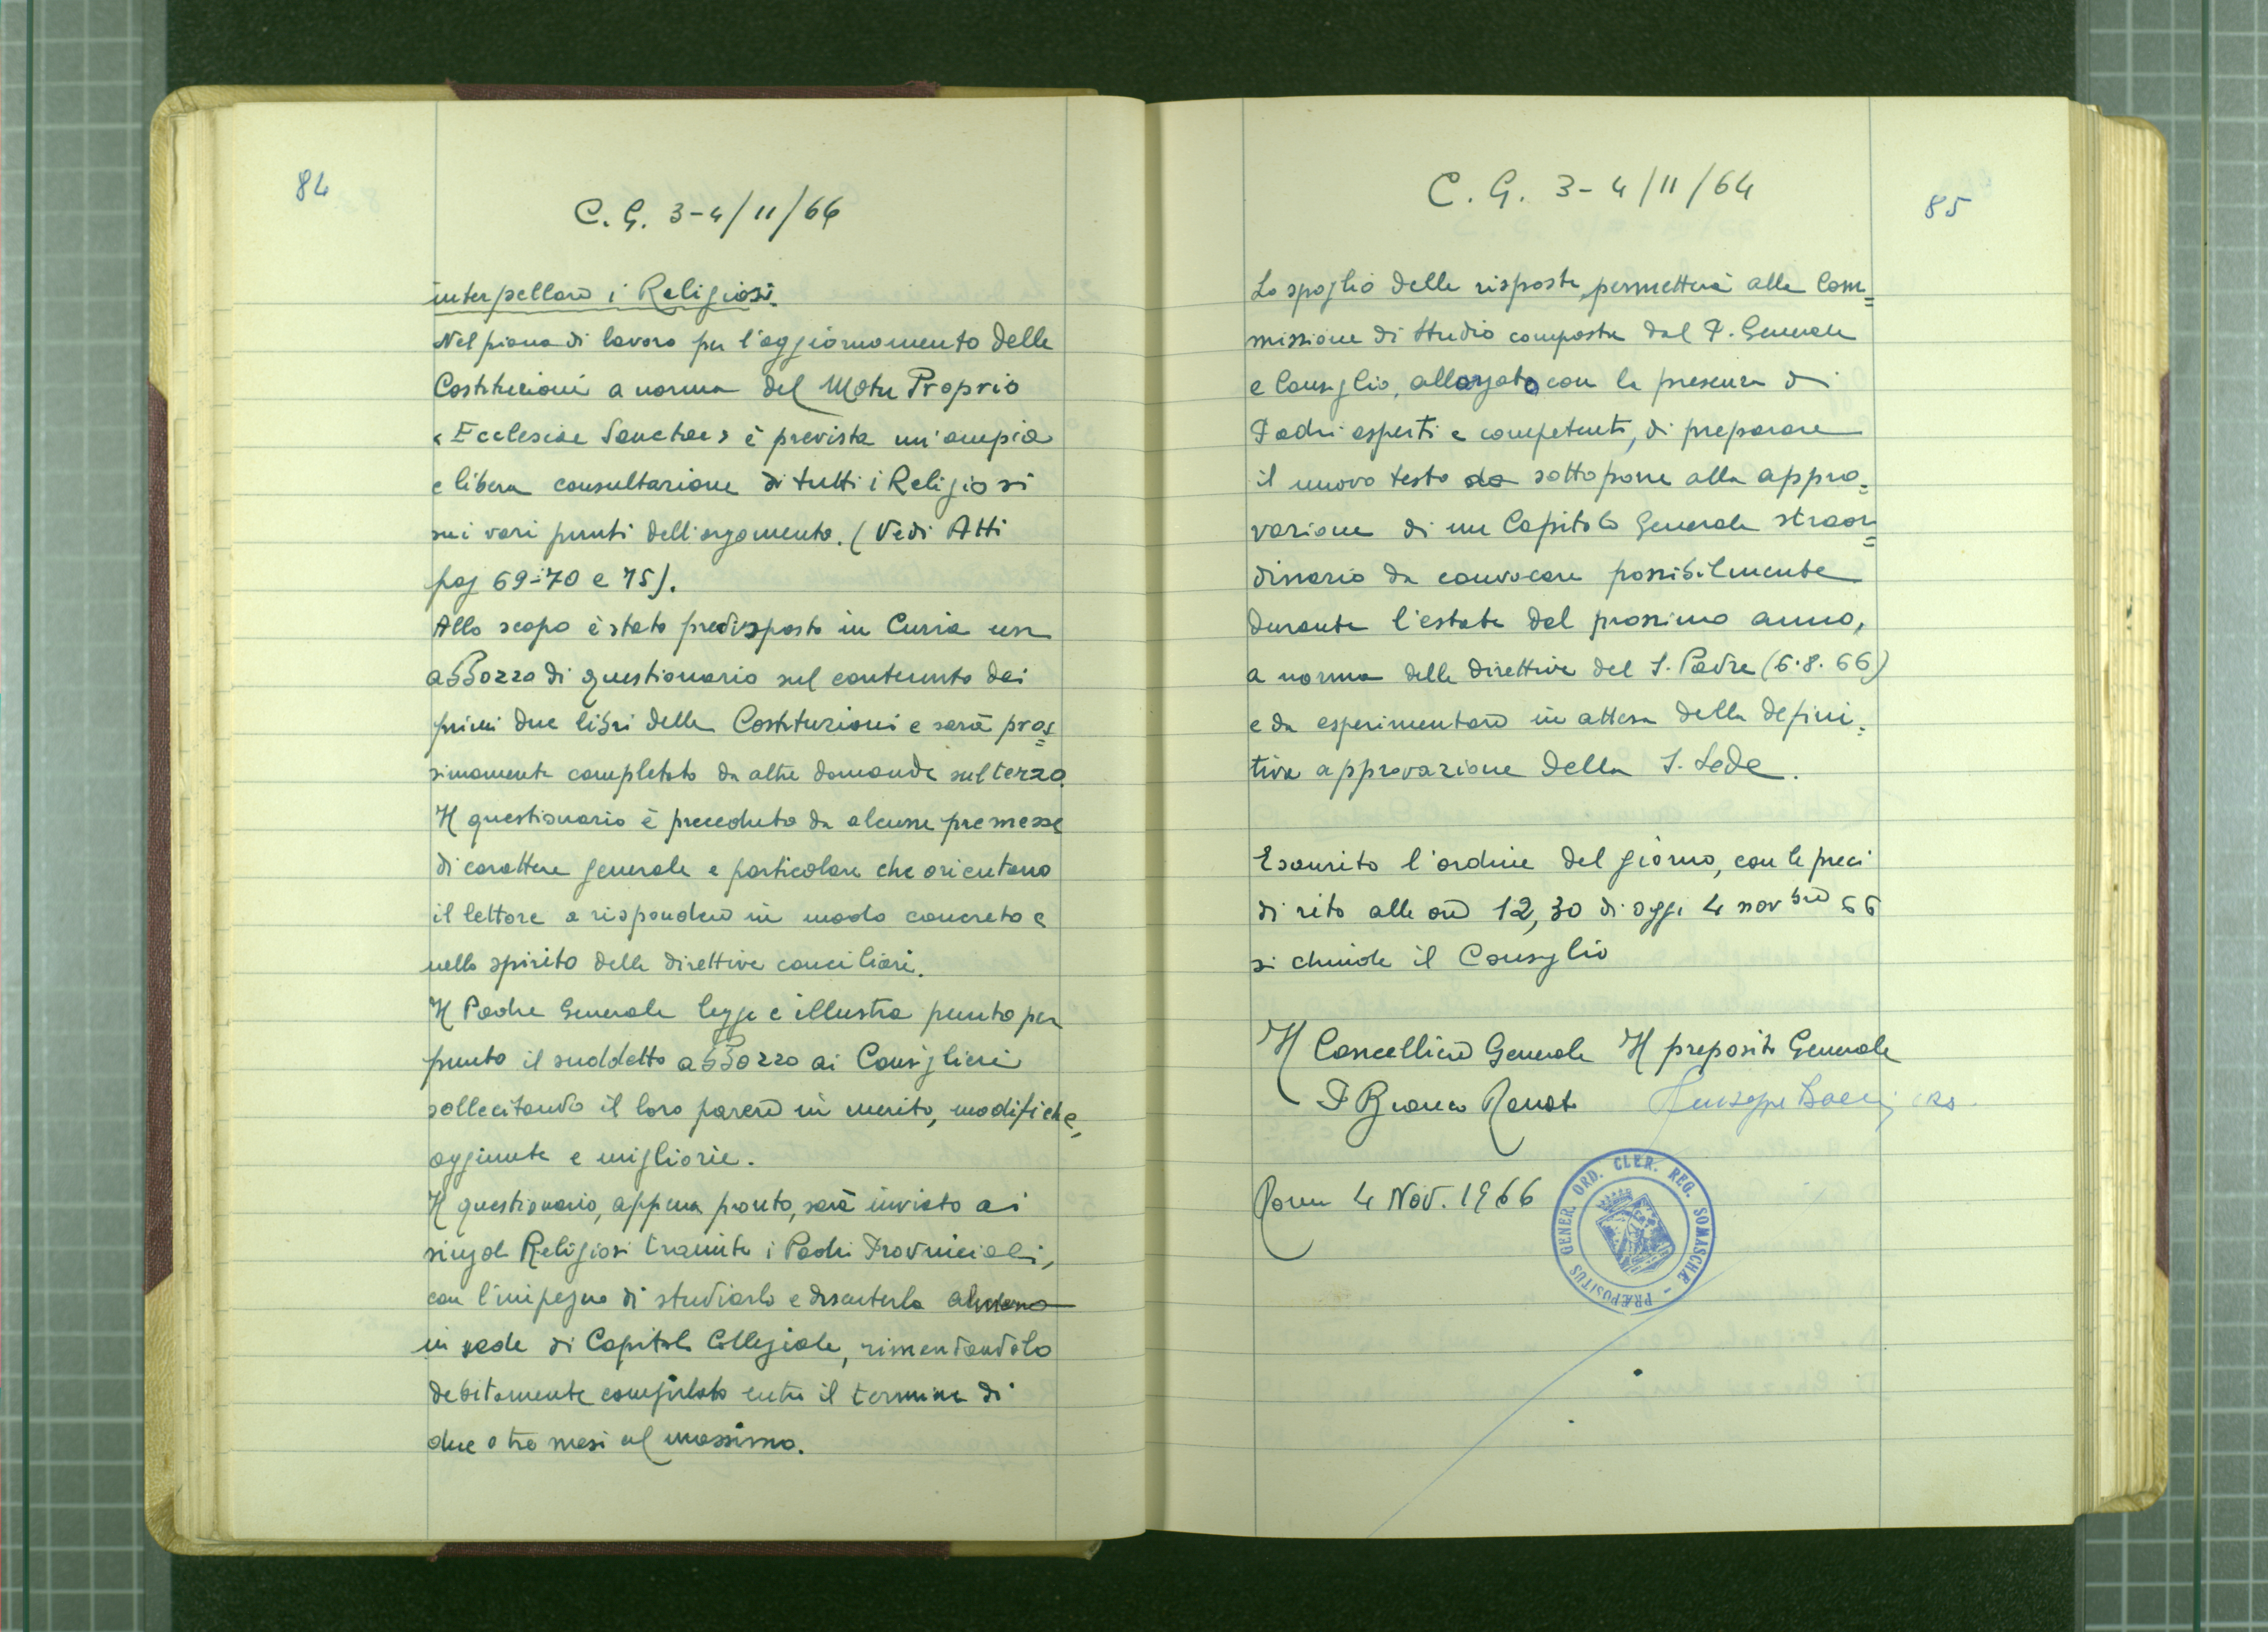 84
C. G. 3-4/11/66
interpellare i Religiosi.
Nel piano di lavoro per l'aggiornamento delle
Costituzioni a norma del Motu Proprio
«Ecclesiae Sanctae» è prevista un'ampia
e libera consultazione di tutti i Religiosi
sui vari punti dell'argomento. (Vedi Atti
pag 69-70 e 75).
Allo scopo è stato predisposto in Curia un
abbozzo di questionario sul contenuto dei
primi due libri delle Costituzioni e sarà pros=
simamente completato da altre domande sul terzo.
Il questionario è preceduto da alcune premesse
di carattere generale e particolare che orientano
il lettore a rispondere in modo concreto e
nello spirito delle direttive conciliari.
Il Padre Generale legge e illustra punto per
punto il suddetto abbozzo ai Consiglieri
sollecitando il loro parere in merito, modifiche,
aggiunte e migliorie.
Il questionario, appena pronto, sarà inviato ai
singoli Religiosi tramite i Padri Provinciali,
con l'impegno di studiarlo e discuterlo almeno
in sede di Capitolo Collegiale, rimandandolo
debitamente compilato entro il termine di
due o tre mesi al massimo.
C. G. 3-4/11/64
85
Lo spoglio delle risposte, permetterà alla Com=
missione di studio composta dal P. Generale
e Consiglio, allargato con la presenza di
Padri esperti e competenti, di preparare
il nuovo testo da sottoporre alla appro=
vazione di un Capitolo Generale straor=
dinario da convocare possibilmente
durante l'estate del prossimo anno,
a norma delle direttive del S. Padre (6.8.66)
e da esperimentare in attesa della defini=
tiva approvazione della S. Sede.
Esaurito l'ordine del giorno, con le preci
di rito alle ore 12,30 di oggi 4 novbre 66
si chiude il Consiglio
Il Cancelliere Generale Il preposito Generale
P Bianco Renato Giuseppe Boeri crs.
Roma 4 Nov. 1966
PRÆPOSITUS GENER. ORD. CLER. REG. SOMASCHÆ